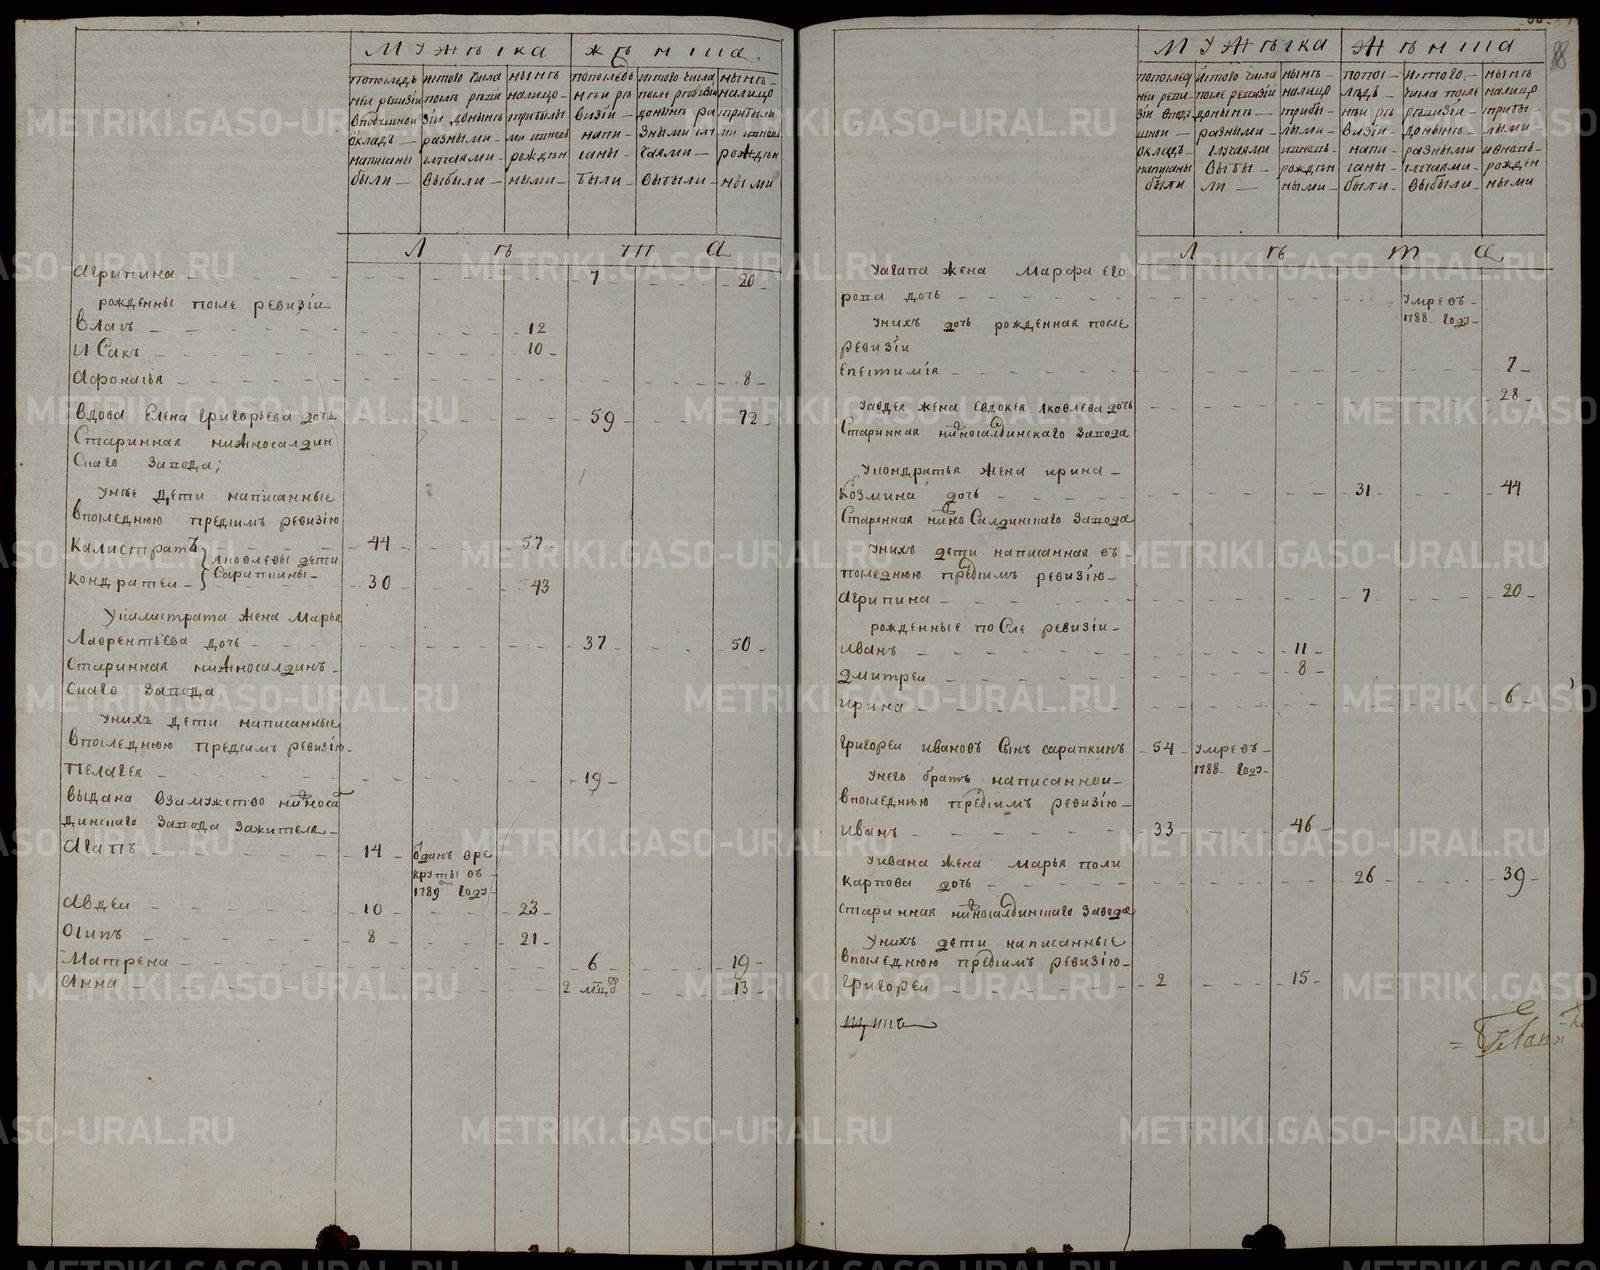 Мужеска
женска
попоследь
ней ревизии
вподушной
окладъ
написаны
были
истого числа
после реви
зіи донынѣ
разными
случаями
выбыли
нынѣ
налицо
прибылы
ми
рожден
ными
попоследь
ней ре
визіи
напи
саны
были
истого числа
после ревизіи
донынѣ ра
зными слу
чаями
выбыли
нынѣ
налицо
прибылы
ми
рожден
ными
л ѣ т а
Агрипина 7 20
рожденны после ревизіи
Власъ 12
Исакъ 10
Афонасья 8
Вдова Елена Григорьева дочь 59 72
Старинная нижносалдин
скаго завода;
Унее дети написанные
впоследнюю предсимъ ревизію
Калистратъ 44 57
Яковлевы дети
Сарапкины
Кондратеи 30 43
Укалистрата жена Марья
Лаврентьева дочь 37 50
Старинная нижносалдинъ
скаго завода
Унихъ дети написанные
впоследнюю предсимъ ревизію
Пелагея 19
выдана взамужство нижноса
динскаго завода зажителя
Агапъ 14 одань вре
круты въ
1789 году
Авдеи 10 23
Осипъ 8 21
Матрена 6 19
Анна 2 мцъ 13
88
Мужеска
Женска
попослед
ней реви
зіи впод
ушной
окладъ
написаны
были
истого числа
после ревизіи
донынѣ
разными
случаями
выбы
ли
нынѣ
налицо
прибы
лыми
рожден
ными
попос
ледь
ней ре
визіи
напи
саны
были
истого
числа после
ревизіи
донынѣ
разными
случаями
выбыли
нынѣ
налицо
прибы
лыми
ивновь
рожден
ными
л ѣ т а
Уагапа жена Марфа его
рова дочь умре въ
1788 году
Унихъ дочь рожденная после
ревизіи
Епестимія 7
Уавдея жена Евдокея Яковлева дочь 28
Старинная нижносалдинскаго завода
Укондратья жена Ирина
Козмина дочь 31 44
Старинная нижно Салдинскаго завода
Унихъ дети написанная въ
последнюю предсимъ ревизію
Агрипина 7 20
рожденные после ревизіи
Иванъ 11
Дмитреи 8
Ирина 6
Григореи Ивановъ Сынъ Сарапкинъ 54 умре въ
1788 году
Унего братъ написаннои
впоследнюю предсимъ ревизію
Иванъ 33 46
Уивана жена Марья Поли
карпова дочь 26 39
старинная нижносалдинскаго завода
Унихъ дети написанные
впоследнюю предсимъ ревизію
Григореи 2 15
METRIKI.GASO-URAL.RU